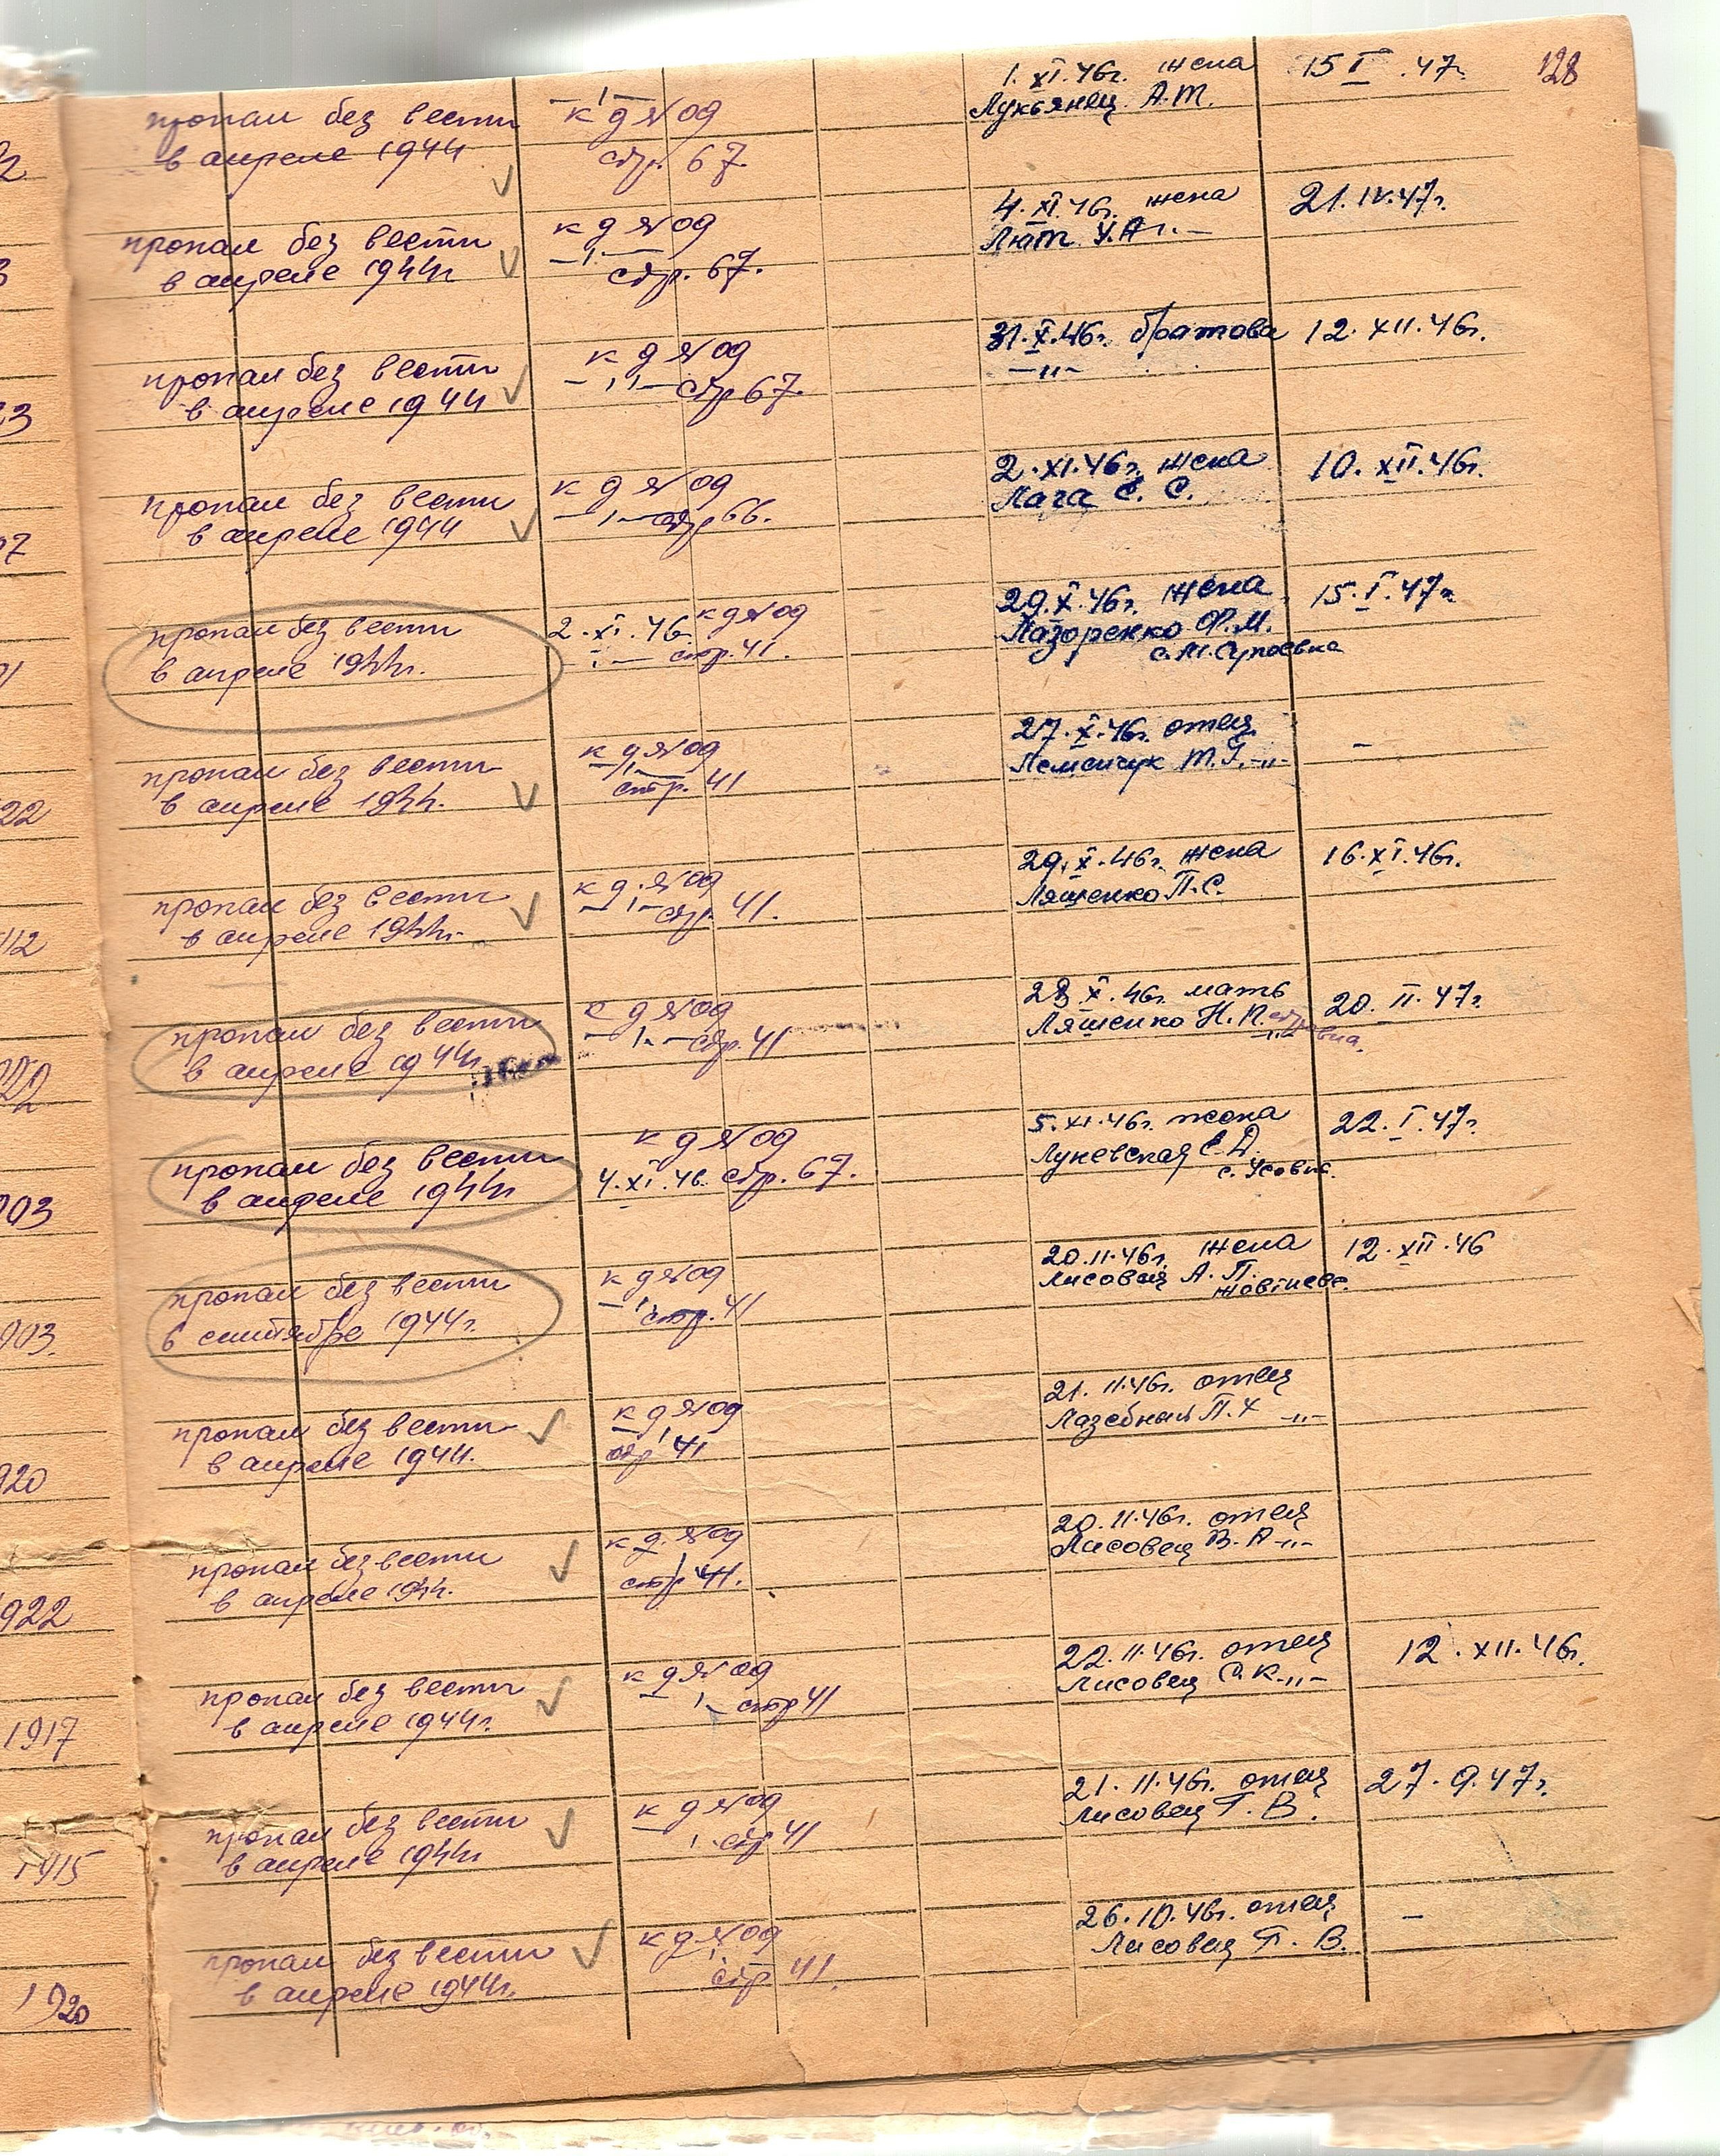 128
пропал без вести
в апреле 1944
к д №09
стр. 67.
1. XI. 46г. жена
Лукьянец А.Т.
15 I .47г.
пропал без вести
в апреле 1944г
к д №09
стр. 67.
4. XI. 46г. жена
Лют У.А
21. IV. 47г.
пропал без вести
в апреле 1944
к д №09
стр 67.
31. X. 46г. братова
—"—
12. XII. 46г.
пропал без вести
в апреле 1944
к д №09
стр 66.
2. XI. 46г. жена
Лага Е. С.
10. XII. 46г.
пропал без вести
в апреле 1944г.
2. XI. 46 к д №09
стр. 41.
29. X. 46г. жена
Лазоренко Ф. М.
15. I. 47г
пропал без вести
в апреле 1944.
к д №09
стр. 41
27. X. 46г. отец
Т.Г. —"—
—
пропал без вести
в апреле 1944г.
к д. №09
стр. 41.
29. X. 46г. жена
Ляшенко П. С.
16. XI. 46г.
пропал без вести
в апреле 1944г.
к д №09
стр. 41
28. X. 46г. мать
Ляшенко Н. П.
20. II. 47г.
пропал без вести
в апреле 1944г
к д №09
4. XI. 46. стр. 67.
5. XI. 46г. жена
Луневская Е. Д.
с. Усовка.
22. I. 47г.
пропал без вести
в сентябре 1944г.
к д №09
стр. 41
20. 11. 46г. жена
Лисовец А. П.
12. XII. 46
пропал без вести
в апреле 1944.
к д №09
стр 41
21. 11. 46г. отец
Лазебный П. —"—
пропал без вести
в апреле 1944.
к д. №09
стр 41.
20. 11. 46г. отец
Лисовец В. А —"—
пропал без вести
в апреле 1944г.
к д №09
стр 41
22. 11. 46г. отец
Лисовец С. К. —"—
12. XII. 46г.
1917
пропал без вести
в апреле 1944г
к д №09
стр 41
21. 11. 46г. отец
Лисовец Г. В.
27. 9. 47г.
1915
пропал без вести
в апреле 1944г.
к д №09
стр. 41.
26. 10. 46г. отец
Лисовец Г. В.
—
1920